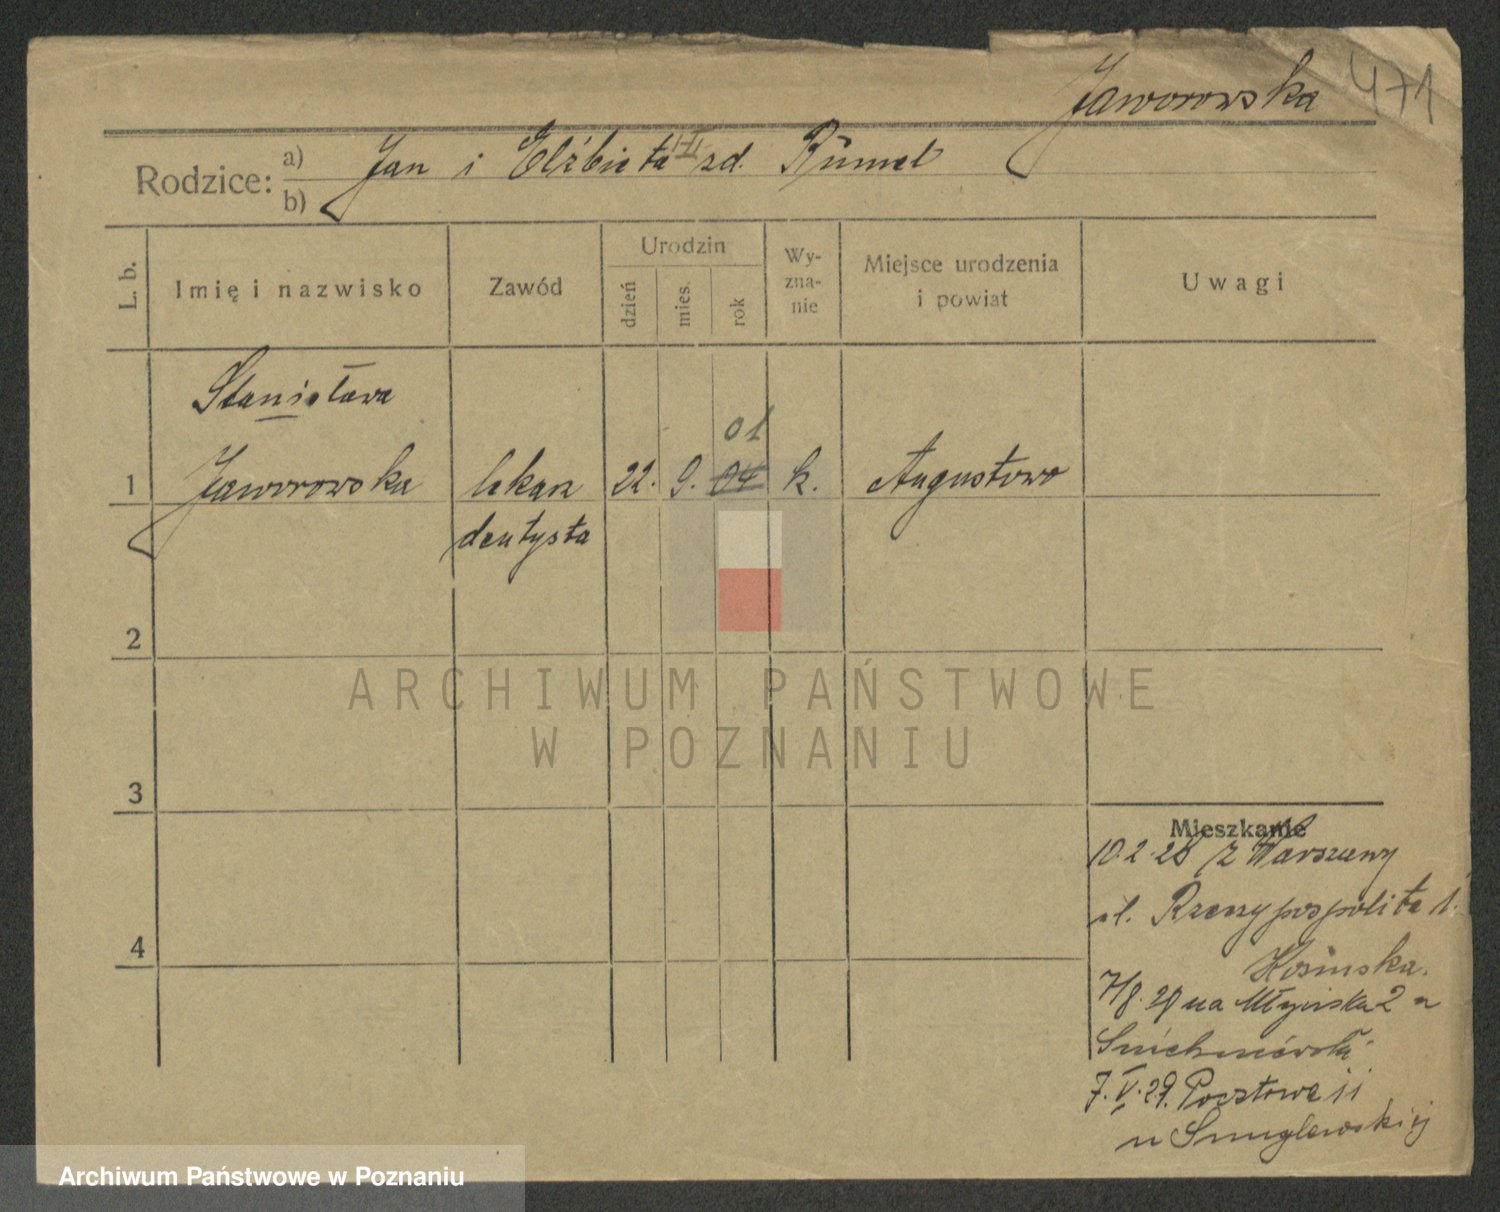 Jaworowska 471
Rodzice: a) b) Jan i Elżbieta zd. Rümel
L. b. Imię i nazwisko Zawód Urodzin dzień mies. rok Wy-zna-nie Miejsce urodzenia i powiat Uwagi
Stanisława
01
1 Jaworowska lekarz 22. 9. 04 k. Augustowo
dentysta
2
ARCHIWUM PAŃSTWOWE
W POZNANIU
3
Mieszkanie
10.2.28 z Warszawy
ul. Rzeczypospolita 1.
Kosinska.
7/8. 28 na Młyńska 2 u
7.V.29. Pocztowa 11
u Smuglewskiej
4
Archiwum Państwowe w Poznaniu